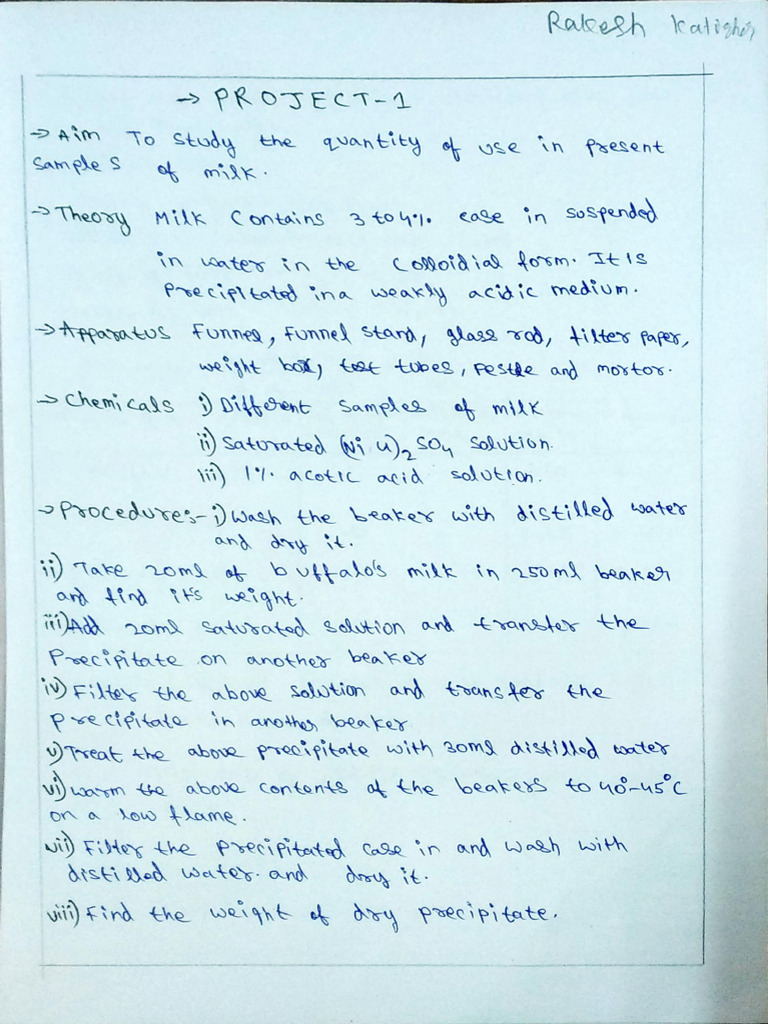 Rakesh
→ PROJECT-1
→ Aim To study the quantity of use in present
samples of milk.
→ Theory Milk Contains 3 to 4% case in suspended
in water in the Colloidial form. It is
Precipitated in a weakly acidic medium.
→ Apparatus Funnel, Funnel stand, glass rod, filter paper,
weight box, test tubes, Pestle and mortor.
→ Chemicals i) Different samples of milk
ii) Saturated (Ni u)₂ SO₄ solution.
iii) 1% acotic acid solution.
→ Procedure:- i) Wash the beaker with distilled water
and dry it.
ii) Take 20ml of buffalo's milk in 250ml beaker
and find it's weight.
iii) Add 20ml saturated solution and transfer the
Precipitate on another beaker
iv) Filter the above solution and transfer the
precipitate in another beaker
v) Treat the above precipitate with 30ml distilled water
vi) warm the above contents of the beakers to 40°-45°C
on a low flame.
vii) Filter the Precipitated case in and wash with
distilled water. and dry it.
viii) Find the weight of dry precipitate.